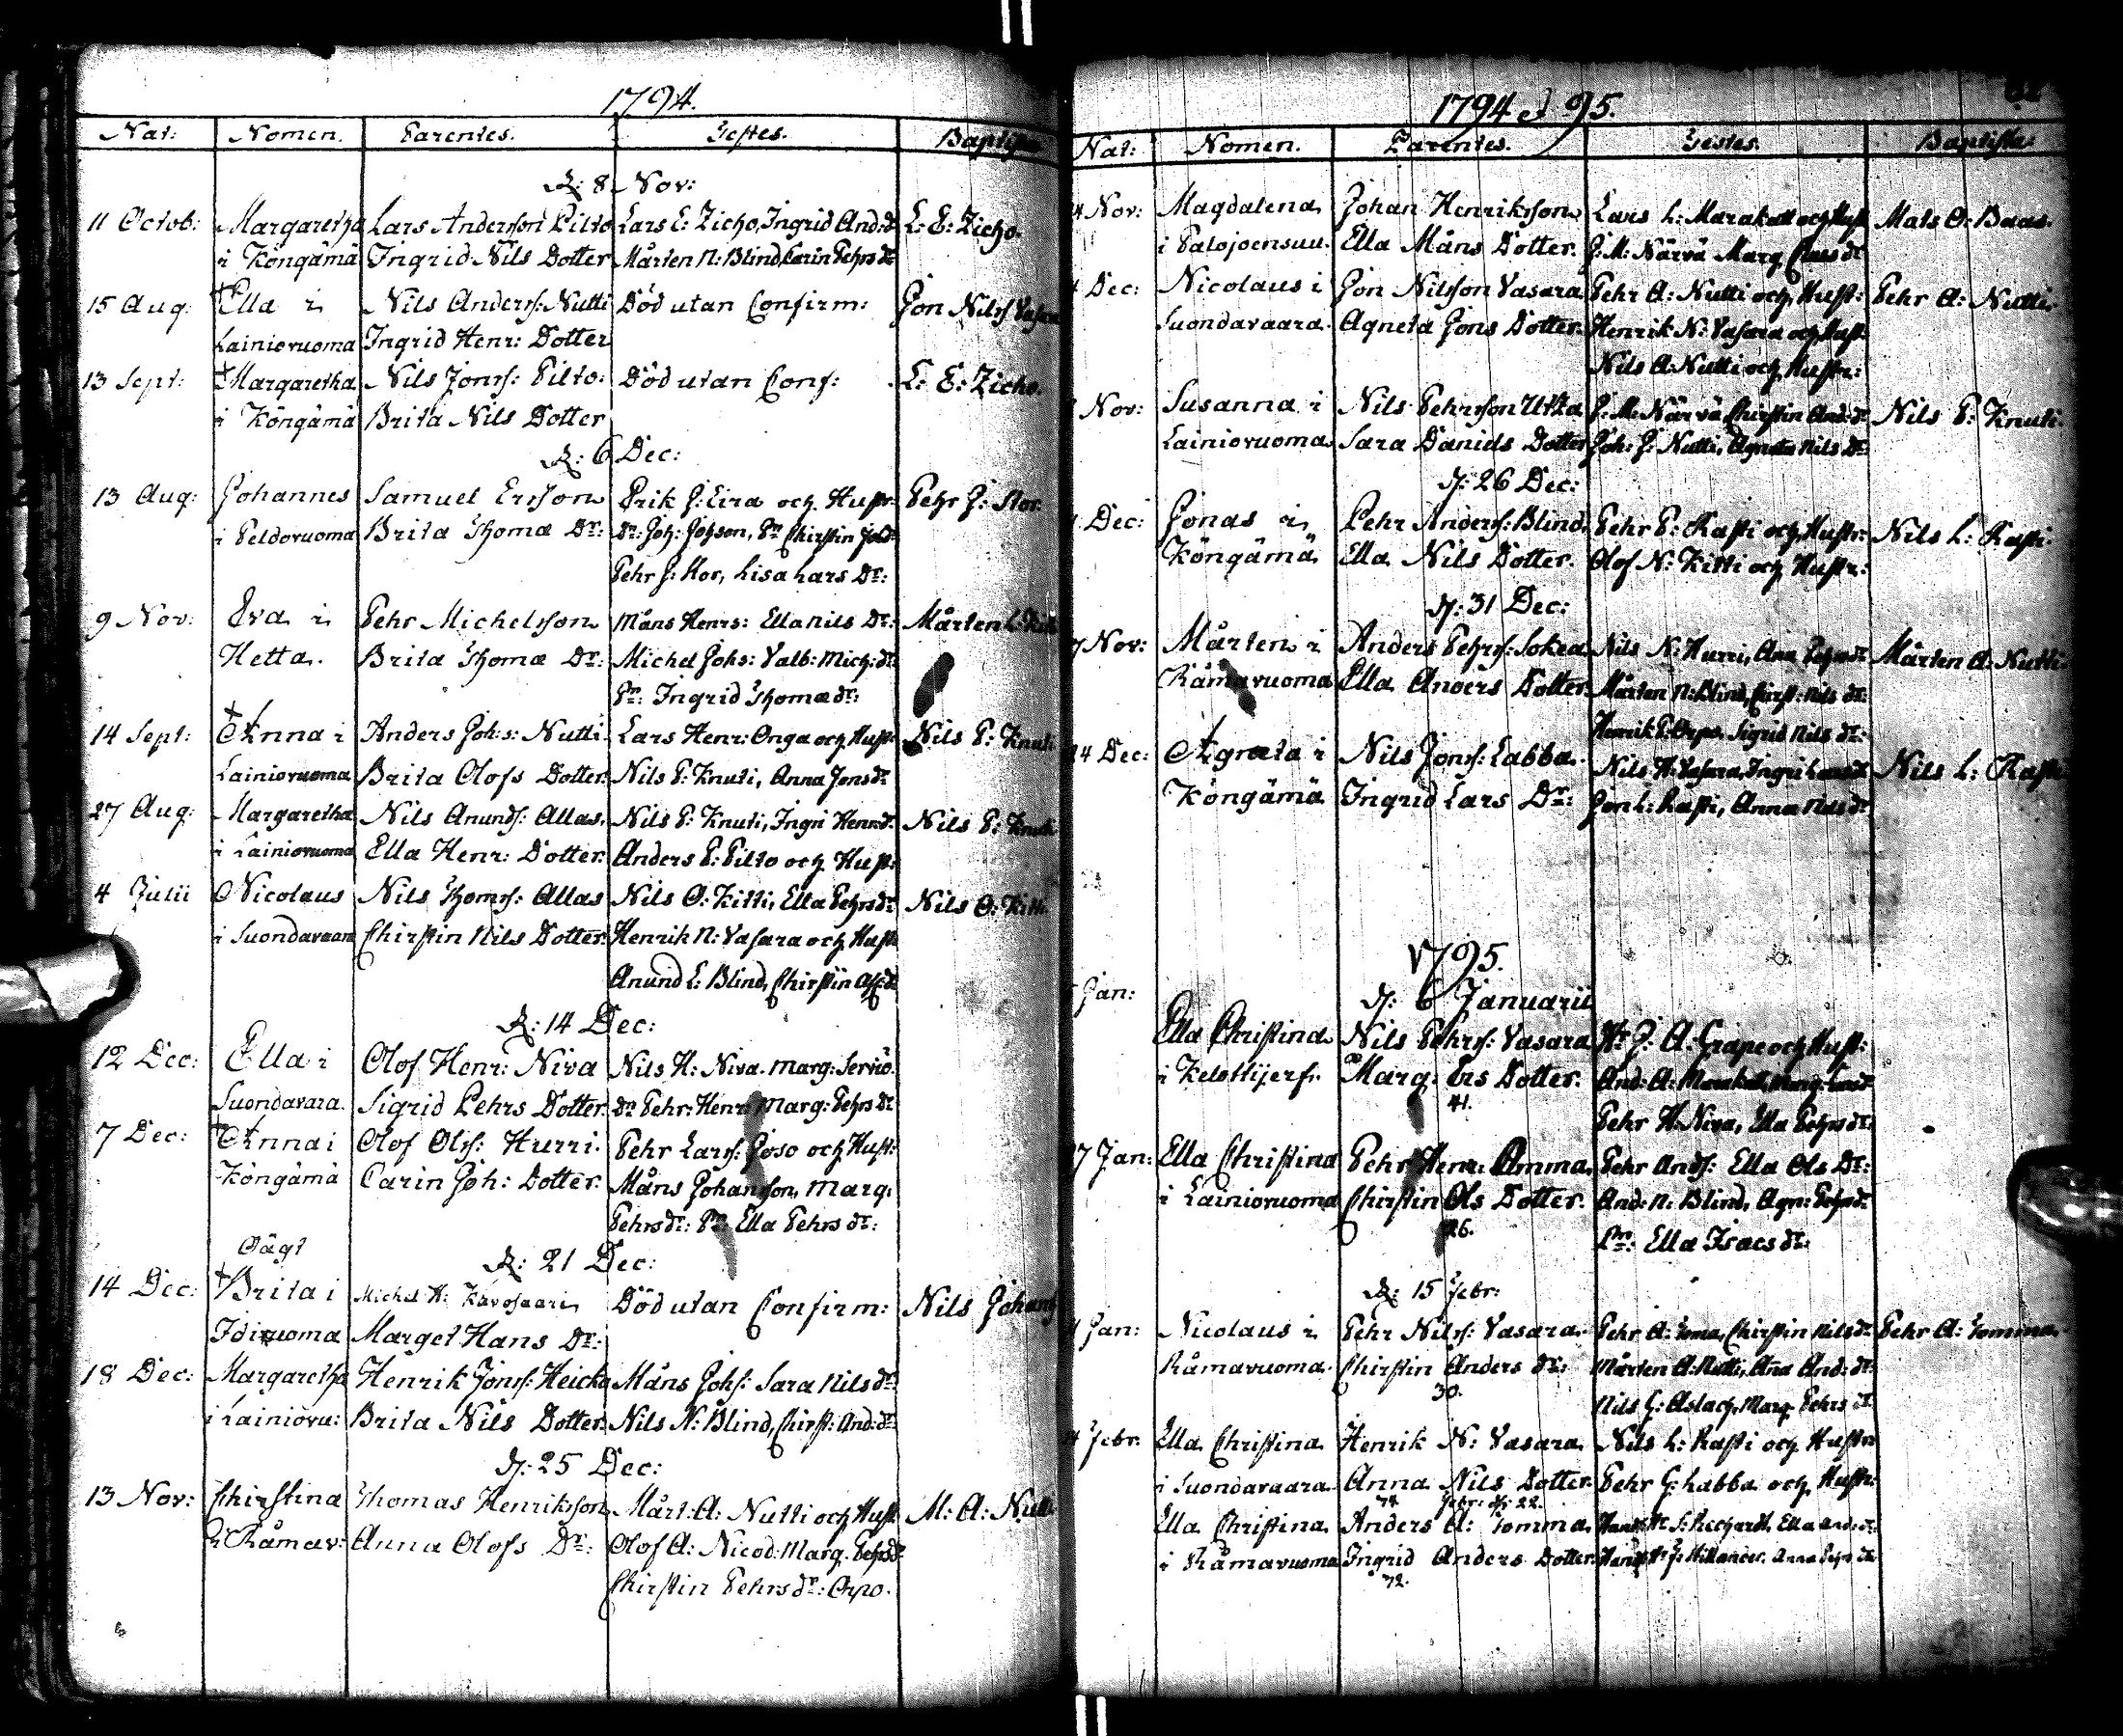 1794.
Nat: Nomen. Parentes. Testes. Baptista
D: 8 Nov:
11 Octob: Margaretha Lars Andersson Pilto Lars E: Zicho, Ingrid And: d L: E: Zicho.
i Köngämä Ingrid Nils Dotter Mårten N: Blind, Carin Pehrs dr
15 Aug: Ella i Nils Anders: Nutti Död utan Confirm: Jon Nilss Vasara
Lainiovuoma Ingrid Henr: Dotter
13 Sept: Margaretha Nils Jonss: Pilto: Död utan Conf: L: E: Zicho.
i Köngämä Brita Nils Dotter
D: 6 Dec:
13 Aug: Johannes Samuel Ersson Erik J: Eira och Hustr: Pehr J: Stor
i Peldovuoma Brita Thomæ Dr: Dr: Joh: Johson, Pr Chirstin
Pehr J: Stor, Lisa Lars Dr:
9 Nov: Eva i Pehr Michelsson Måns Henrs: Ella Nils Dr: Mårten
Hetta. Brita Thomæ Dr: Michel Johs: Valb: Mich: dr
Pr: Ingrid Thomæ dr:
14 Sept: Anna i Anders Joh:s: Nutti Lars Henr: Onga och Hust: Nils P: Knuti
Lainiovuoma Brita Olofs Dotter Nils P: Knuti, Anna Jons dr
27 Aug: Margaretha Nils Anunds: Allas Nils P: Knuti, Ingri Henr: d. Nils P: Knuti
i Lainiovuoma Ella Henr: Dotter Anders P: Pilto och Hust:
4 Julii Nicolaus Nils Thomss: Allas Nils O: Kitti, Ella Pehrs dr Nils O: Kitti
i Suondavaara Chirstin Nils Dotter Henrik N: Vasara och Hust
Anund L: Blind, Chirstin
D: 14 Dec:
12 Dec: Ella i Olof Henr: Niva Nils H: Niva. Marg: Servio.
Suondavara. Sigrid Pehrs Dotter. dr Pehr: Henr: Marg: Pehrs dr
7 Dec: Anna i Olof Olss: Hurri. Pehr Larss: Joso och Hust:
Köngämä Carin Joh: Dotter Måns Johansson, Marg:
Pehrs dr: Pr Ella Pehrs dr:
Oägt
D: 21 Dec:
14 Dec: Brita i Michel H: Kavosaari Död utan Confirm: Nils Johans
Idivuoma Marget Hans Dr:
18 Dec: Margaretha Henrik Jonss: Heicka Måns Johs: Sara Nils dr
i Lainiovu: Brita Nils Dotter Nils N: Blind, Chirst: And: dr
D: 25 Dec:
13 Nov: Chirstina Thomas Henriksson Mårt: A: Nutti och Hust M: A: Nutti
i Råmav: Anna Olofs Dr: Olof A: Nicod: Marg. Pehrs dr
Chirstin Pehrs dr: Orpo.
1794 et 95.
Nat: Nomen. Parentes. Testes. Baptista
4 Nov: Magdalena Johan Henriksson Lars L: Marakatt och Hust Mats O: Baas.
i Palojoensuu. Ella Måns Dotter. J: M: Närvä Marg Claes dr
Dec: Nicolaus i Jon Nilsson Vasara Pehr A: Nutti och Hust: Pehr A: Nutti.
Suondavaara. Agneta Jons Dotter. Henrik N: Vasara och Hust:
Nils A: Nutti och Hustr:
Nov: Susanna i Nils Pehrsson Utza J: M: Närvä Chirstin And: dr Nils P: Knuti.
Lainiovuoma Sara Daniels Dotter Joh: J: Nutti, Agneta Nils Dr:
D: 26 Dec:
Dec: Jonas i Pehr Anderss: Blind. Pehr P: Rasti och Hustr: Nils L: Rasti.
Köngämä Ella Nils Dotter. Olof N: Kitti och Hustr:
D: 31 Dec:
7 Nov: Mårten i Anders Pehrs: Sokea Nils N: Hurri, Ana Pehrs dr Mårten A: Nutti
Råmavuoma Ella Anders Dotter. Mårten N: Blind, Chirst: Nils dr:
Henrik P: Orpo Sigrid Nils dr:
24 Dec: Agneta i Nils Jonss: Labba. Nils H: Vasara, Ingri Lars dr Nils L: Rasti
Köngämä Ingrid Lars Dr: Jon L: Rasti, Anna Nils dr
1795.
Jan: D: 6 Januarii
Ella Christina Nils Pehrs: Vasara Hr J: A: Grape och Hust:
i Kelottijerf. Marg: Ers Dotter. And: A: Marakatt, Marg: Lars dr
41. Pehr H: Niva, Ella Pehrs dr:
27 Jan: Ella Christina Pehr Henr: Omma. Pehr Ands: Ella Ols Dr:
i Lainiovuoma Chirstin Ols Dotter. And: N: Blind, Agn: Pehrs dr
26. Pr: Ella Isacs dr:
D: 15 Febr:
Jan: Nicolaus i Pehr Nilss: Vasara. Pehr A: Tomma, Chirstin Nils dr Pehr A: Tomma.
Råmavuoma. Chirstin Anders dr: Mårten A: Nutti, Ana And: dr:
30. Nils G: Aslach, Marg. Pehrs dr.
Febr. Ella Christina. Henrik N: Vasara. Nils L: Rasti och Hustr:
i Suondavaara Anna Nils Dotter. Pehr G: Labba och Hustr:
Febr: d: 22.
Ella Christina. Anders A: Tomma. Ella And: dr.
i Råmavuoma Ingrid Anders Dotter. Anna Pehrs dr
32.